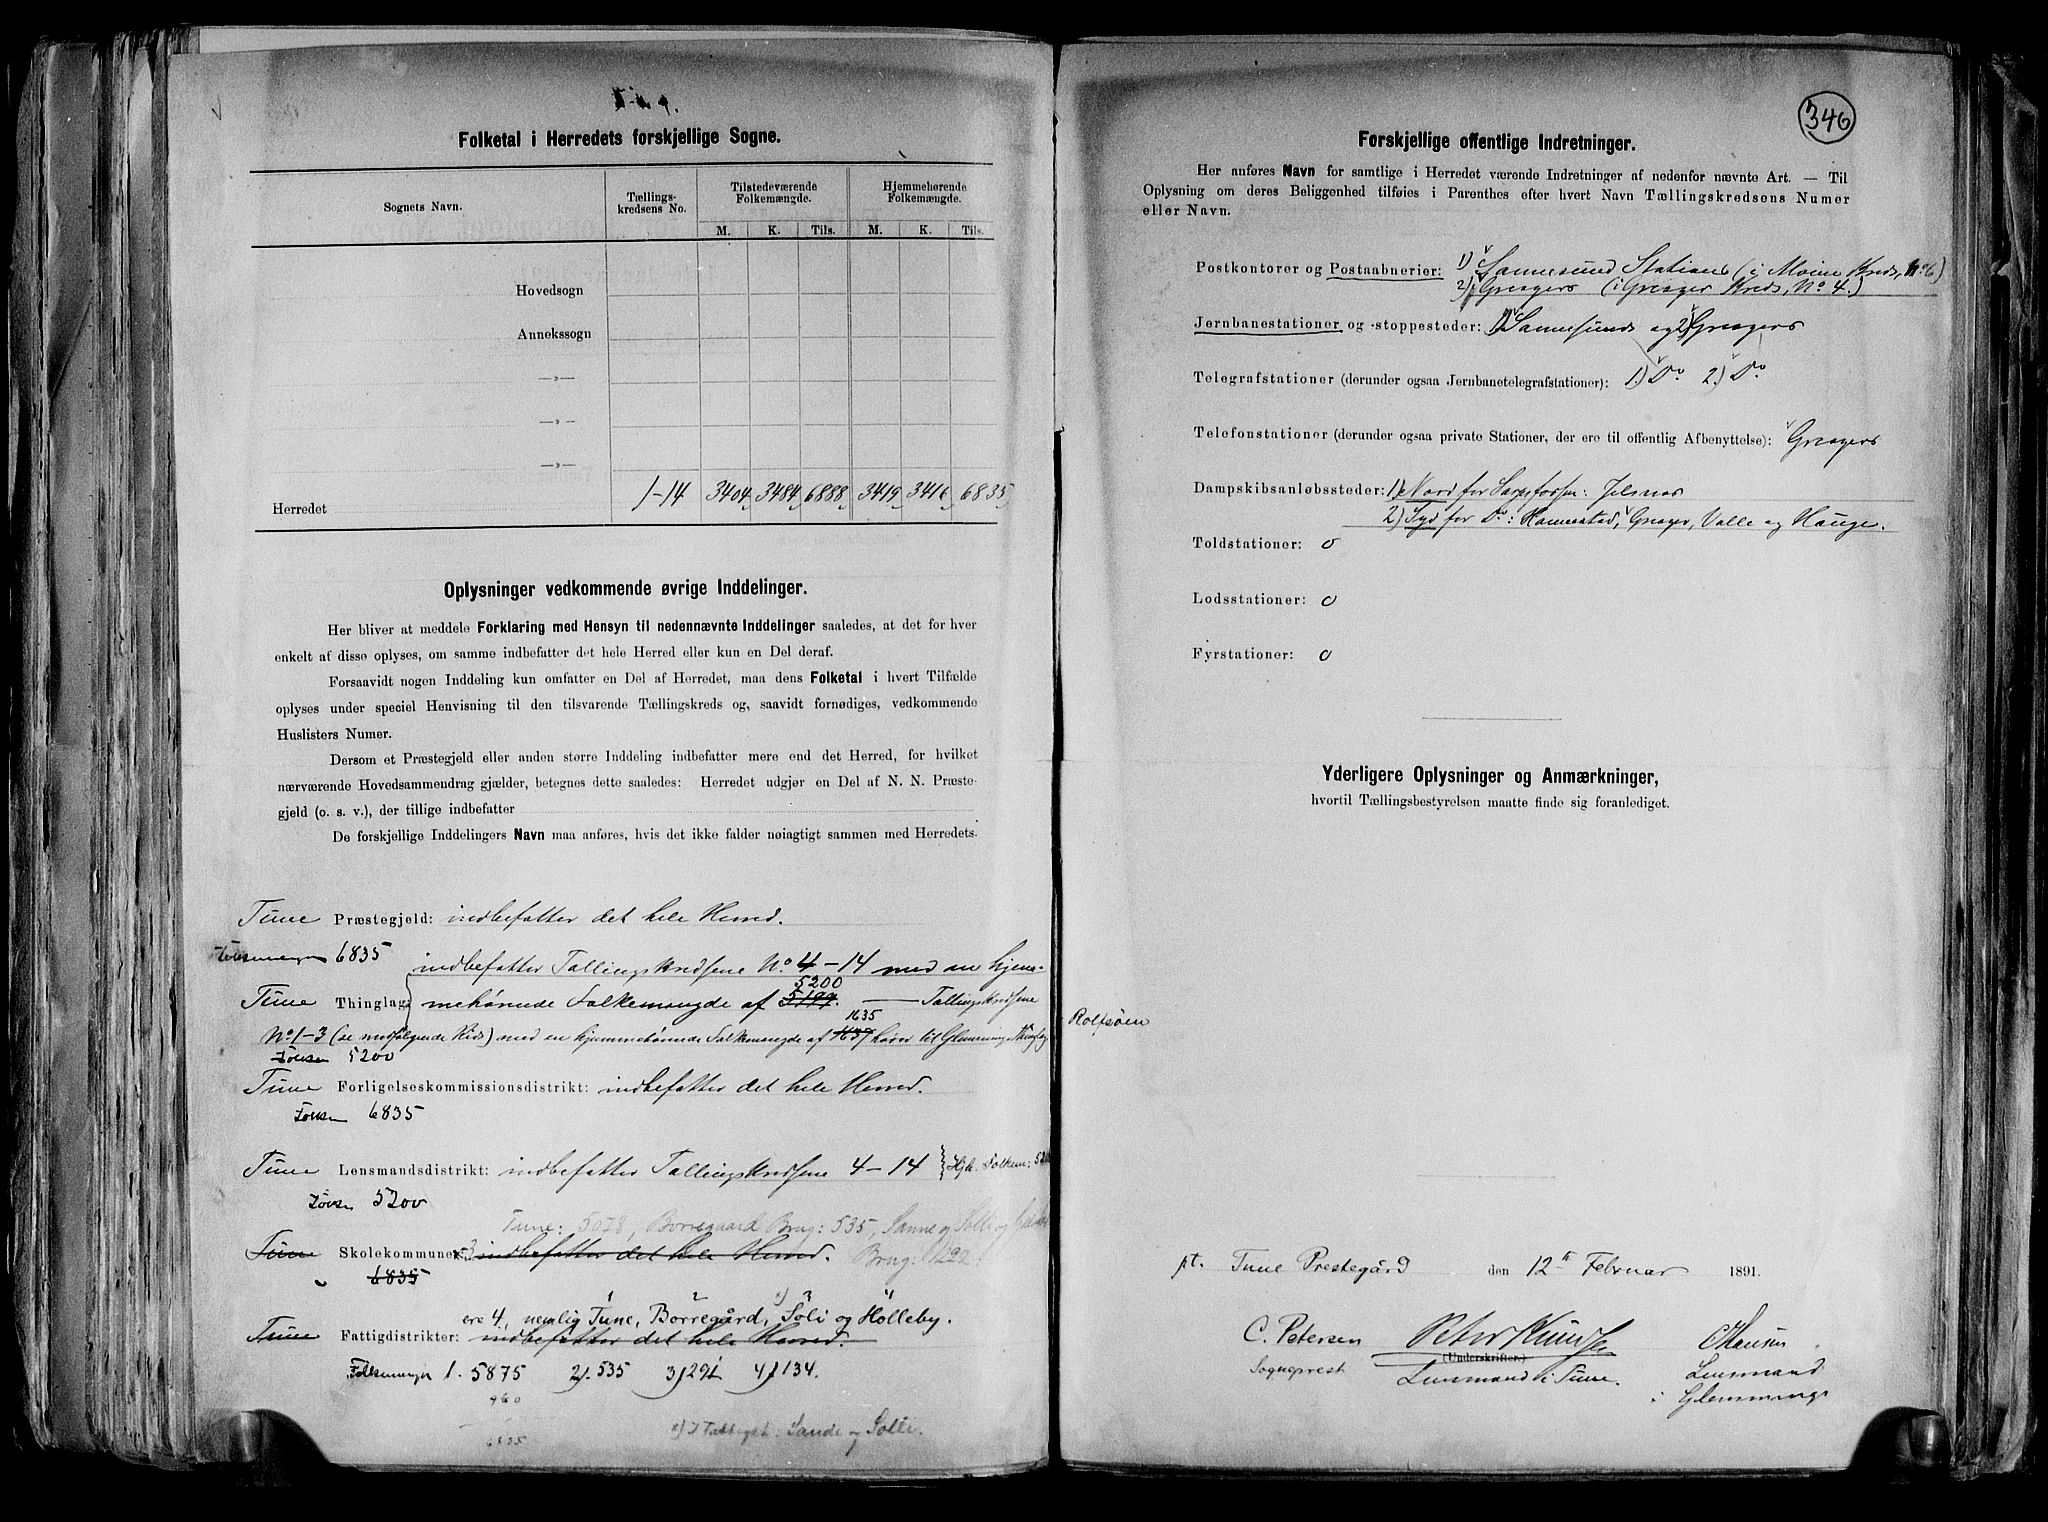 Tune.
Folketal i Herredets forskjellige Sogne.
Sognets Navn. Tællings-kredsens No. Tilstedeværende Folkemængde. Hjemmehørende Folkemængde.
M. K. Tils. M. K. Tils.
Hovedsogn
Annekssogn
—„—
—„—
—„—
Herredet 1-14 3404 3484 6888 3419 3416 6835
Oplysninger vedkommende øvrige Inddelinger.
Her bliver at meddele Forklaring med Hensyn til nedennævnte Inddelinger saaledes, at det for hver
enkelt af disse oplyses, om samme indbefatter det hele Herred eller kun en Del deraf.
Forsaavidt nogen Inddeling kun omfatter en Del af Herredet, maa dens Folketal i hvert Tilfælde
oplyses under speciel Henvisning til den tilsvarende Tællingskreds og, saavidt fornødiges, vedkommende
Huslisters Numer.
Dersom et Præstegjeld eller anden større Inddeling indbefatter mere end det Herred, for hvilket
nærværende Hovedsammendrag gjælder, betegnes dette saaledes: Herredet udgjør en Del af N. N. Præste-
gjeld (o. s. v.), der tillige indbefatter
De forskjellige Inddelingers Navn maa anføres, hvis det ikke falder nøiagtigt sammen med Herredets.
Tune Præstegjeld: indbefatter det hele Herred.
Folkemængde 6835
indbefatter Tællingskredsene No 4-14 med en hjem-
5200
Tune Thinglag: mehørende Folkemængde af 5199. — Tællingskredsene
1635
No 1-3 (se medfølgende Kids) med en hjemmehørende Folkemængde af 1637 hører til Glemminge Thinglag
Folkem 5200
Tune Forligelseskommissionsdistrikt: indbefatter det hele Herred.
Folkem 6835
Tune Lensmandsdistrikt: indbefatter Tællingskredsene 4-14 Hjh. Folkem: 5200
Folkem 5200
Tune: 5078, Borregaard Brug: 535, Sanne og Solli og
Tune Skolekommune: indbefatter det hele Herred. Brug: 1222.
6835
ere 4, nemlig Tune, Borregård, Soli og Hølleby.
Tune Fattigdistrikter: indbefatter det hele Herred.
Folkemængde 1. 5875 2). 535 3) 291 4) 134.
960
6835
x) I Fattigst: Sande og Solli.
346
Forskjellige offentlige Indretninger.
Her anføres Navn for samtlige i Herredet værende Indretninger af nedenfor nævnte Art. — Til
Oplysning om deres Beliggenhed tilføies i Parenthes efter hvert Navn Tællingskredsens Numer
eller Navn.
Postkontorer og Postaabnerier: 1) Sannesund Station (i Moine Kreds, No 6)
2) Greagers (i Greager Kreds, No 4.)
Jernbanestationer og -stoppesteder: 1) Sannesunds og 2) Greagers
Telegrafstationer (derunder ogsaa Jernbanetelegrafstationer): 1) Do 2) Do
Telefonstationer (derunder ogsaa private Stationer, der ere til offentlig Afbenyttelse): Greagers
Dampskibsanløbssteder: 1) Nord for Sarpsfossen: Jelsnæs
2) Syd for Do: Hannestad, Greager, Valle og Hauge.
Toldstationer: 0
Lodsstationer: 0
Fyrstationer: 0
Yderligere Oplysninger og Anmærkninger,
hvortil Tællingsbestyrelsen maatte finde sig foranlediget.
Rolfsøen
pt. Tune Prestegård den 12te Februar 1891.
C. Petersen Peter Knudsen
Sogneprest (Underskrifter.) Lensmand
Lensmand i Tune. i Glemminge